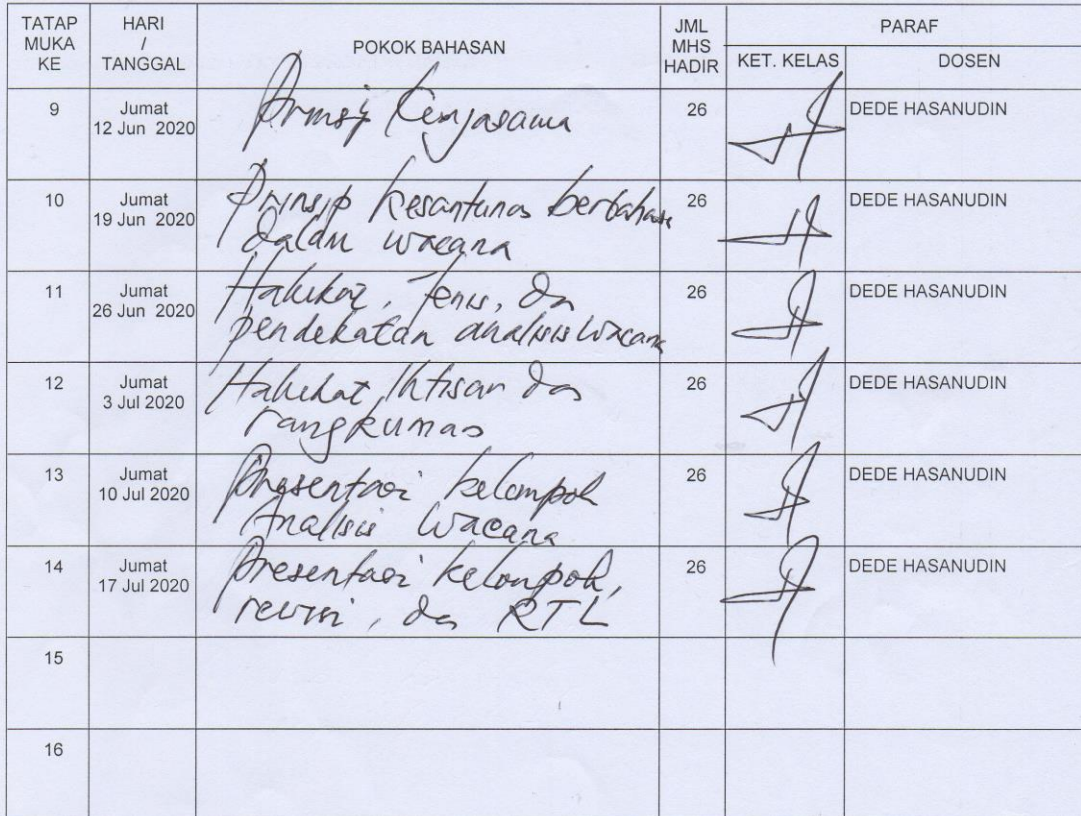 TATAP MUKA KE
HARI / TANGGAL
POKOK BAHASAN
JML MHS HADIR
PARAF
KET. KELAS
DOSEN
9
Jumat
12 Jun 2020
Prinsip Kerjasama
26
DEDE HASANUDIN
10
Jumat
19 Jun 2020
Prinsip kesantunan berbahasa
dalam wacana
26
DEDE HASANUDIN
11
Jumat
26 Jun 2020
Hakikat, Jenis, dan
pendekatan analisis wacana
26
DEDE HASANUDIN
12
Jumat
3 Jul 2020
Hakikat Ikhtisar dan
rangkuman
26
DEDE HASANUDIN
13
Jumat
10 Jul 2020
Presentasi kelompok
Analisis Wacana
26
DEDE HASANUDIN
14
Jumat
17 Jul 2020
Presentasi kelompok,
revisi, dan RTL
26
DEDE HASANUDIN
15
16